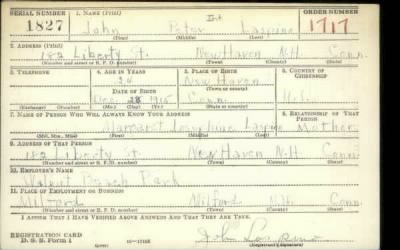 SERIAL NUMBER 1. NAME (Print) ORDER NUMBER
1827 John Peter 1717
(First) (Middle) (Last)
2. ADDRESS (Print)
182 Liberty St. New Haven N.H. Conn.
(Number and street or R. F. D. number) (Town) (County) (State)
3. TELEPHONE 4. AGE IN YEARS 5. PLACE OF BIRTH 6. COUNTRY OF CITIZENSHIP
24 New Haven
DATE OF BIRTH (Town or county)
Dec. 1915 Conn.
(Exchange) (Number) (Mo.) (Day) (Yr.) (State or country)
7. NAME OF PERSON WHO WILL ALWAYS KNOW YOUR ADDRESS 8. RELATIONSHIP OF THAT PERSON
Margaret Mother
(Mr., Mrs., Miss) (First) (Middle) (Last)
9. ADDRESS OF THAT PERSON
182 Liberty St. New Haven N.H. Conn.
(Number and street or R. F. D. number) (Town) (County) (State)
10. EMPLOYER'S NAME
Walnut Beach Park
11. PLACE OF EMPLOYMENT OR BUSINESS
Milford Milford N.H. Conn.
(Number and street or R. F. D. number) (Town) (County) (State)
I AFFIRM THAT I HAVE VERIFIED ABOVE ANSWERS AND THAT THEY ARE TRUE.
REGISTRATION CARD
D. S. S. Form 1 John
(Registrant's signature)